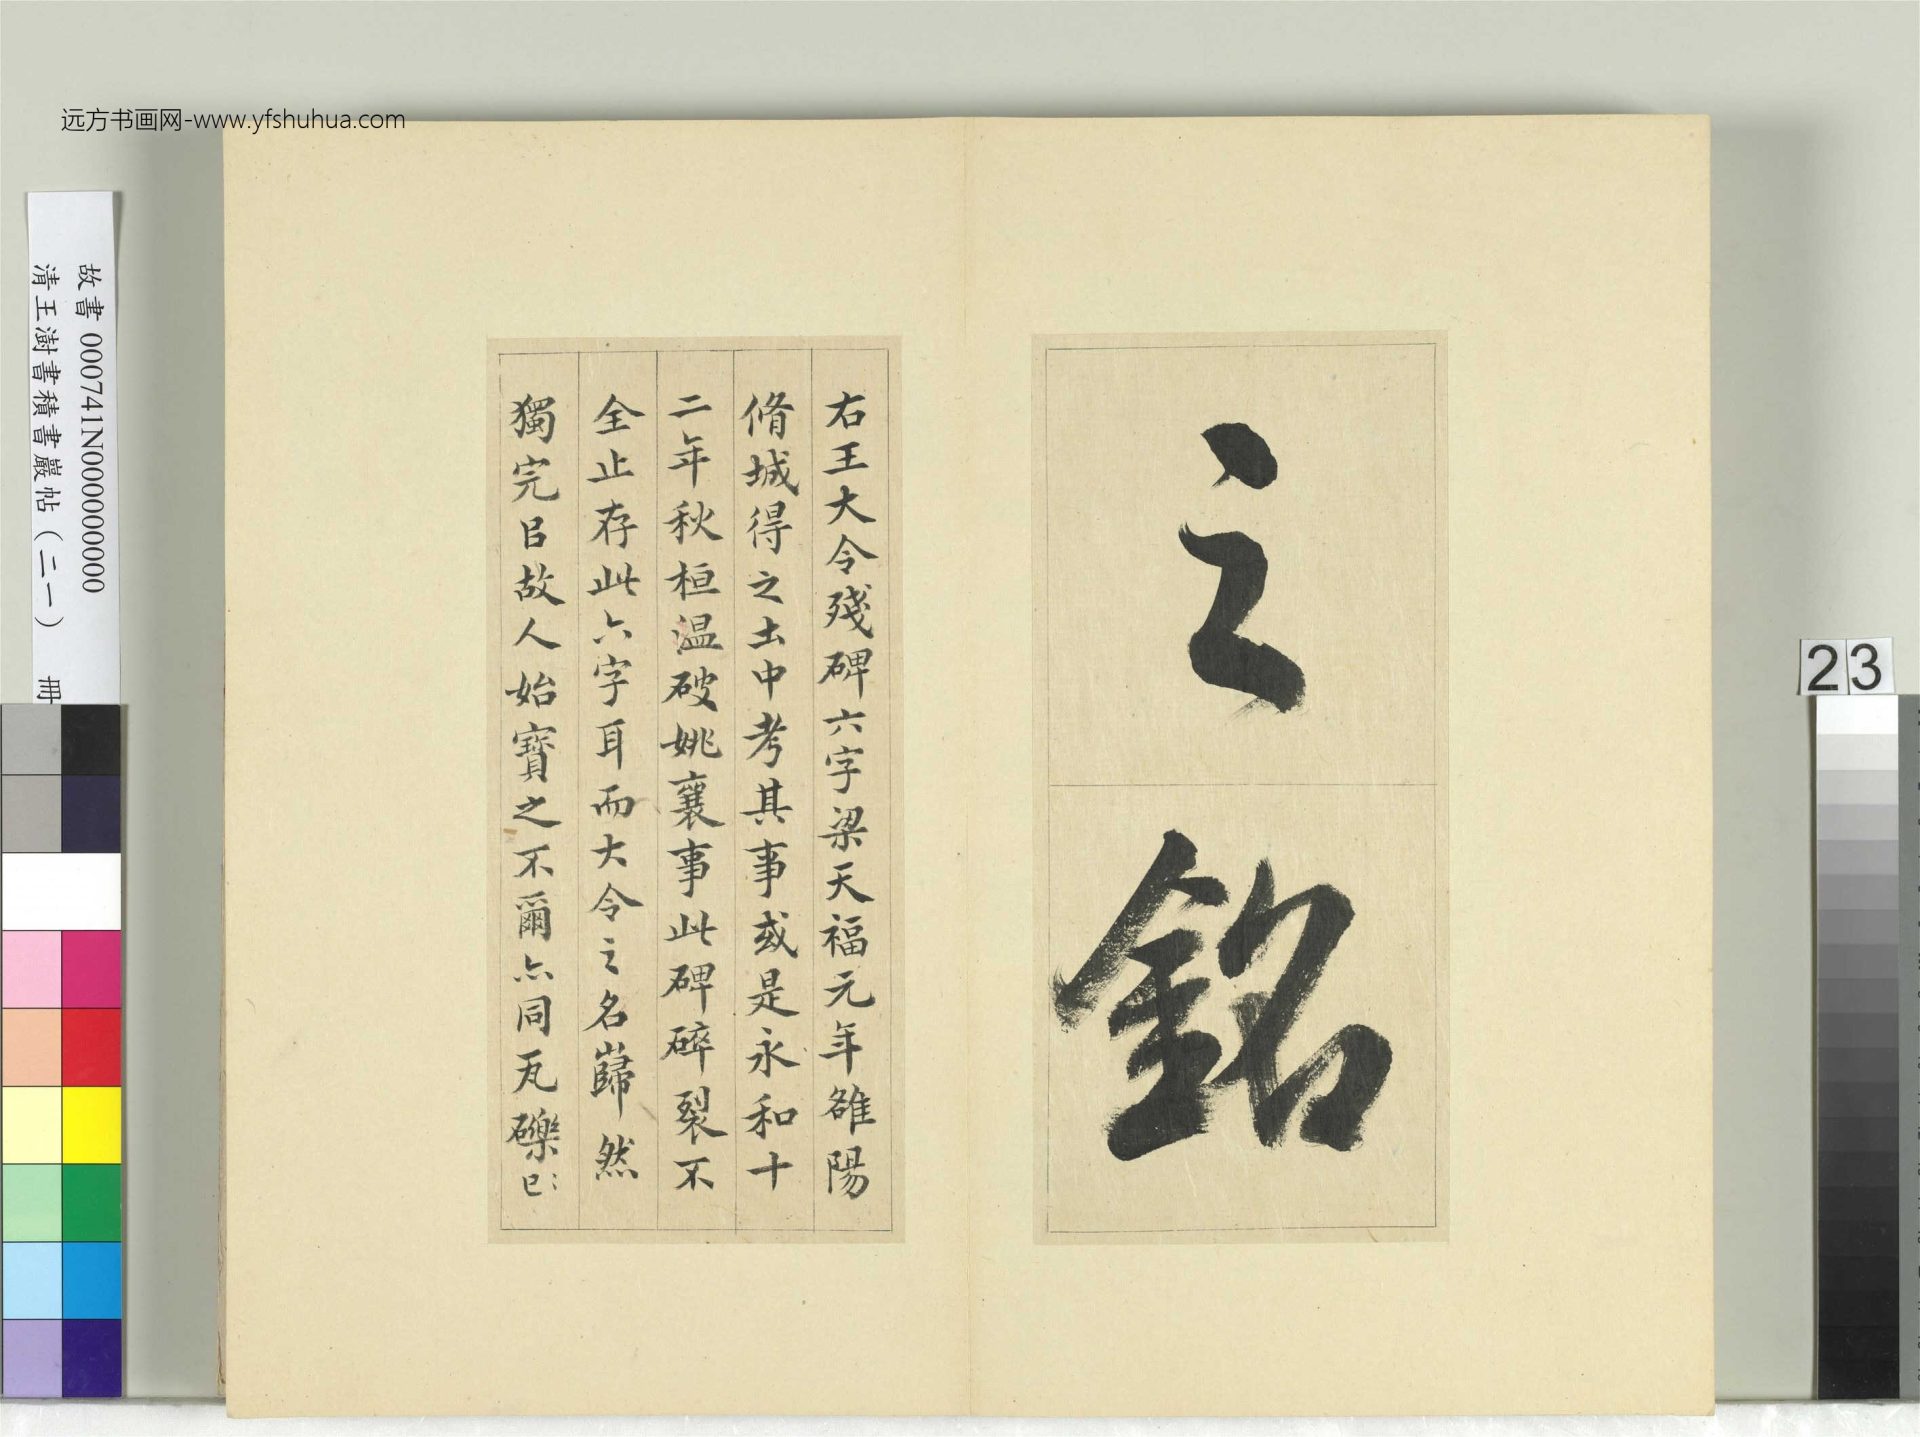 远方书画网-www.yfshuhua.com
故書 000741N000000000
清王澍書積書巖帖（二一） 冊
23
之
銘
右王大令殘碑六字梁天福元年雒陽
脩城得之土中考其事或是永和十
二年秋桓温破姚襄事此碑碎裂不
全止存此六字耳而大令之名巋然
獨完㠯故人始寶之不爾亦同瓦礫已